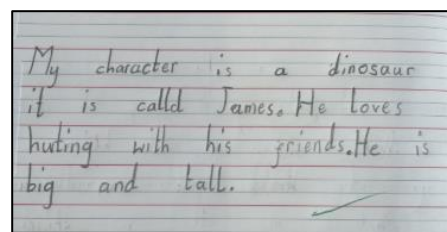 My character is a dinosaur
it is calld James. He loves
huting with his friends. He is
big and tall.